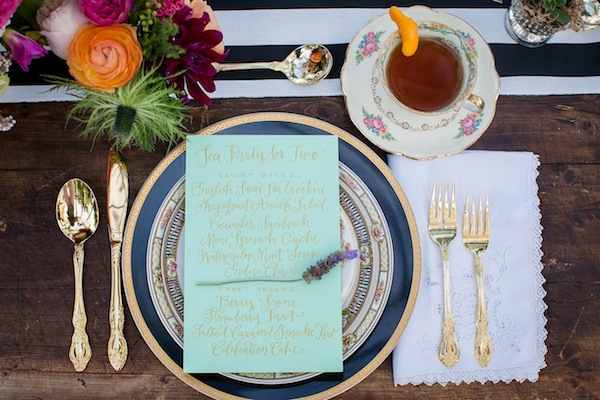 Tea Party for Two
SAVORY BITES
English Sweet Pea Crostini
Grapefruit & Avocado Salad
Cucumber Sandwich
Mini Spinach Quiche
Watermelon Mint Soup
Endive
SWEET TREATS
Berries Scone
Strawberry Tart
Salted Caramel Ganache Tart
Celebration Cake